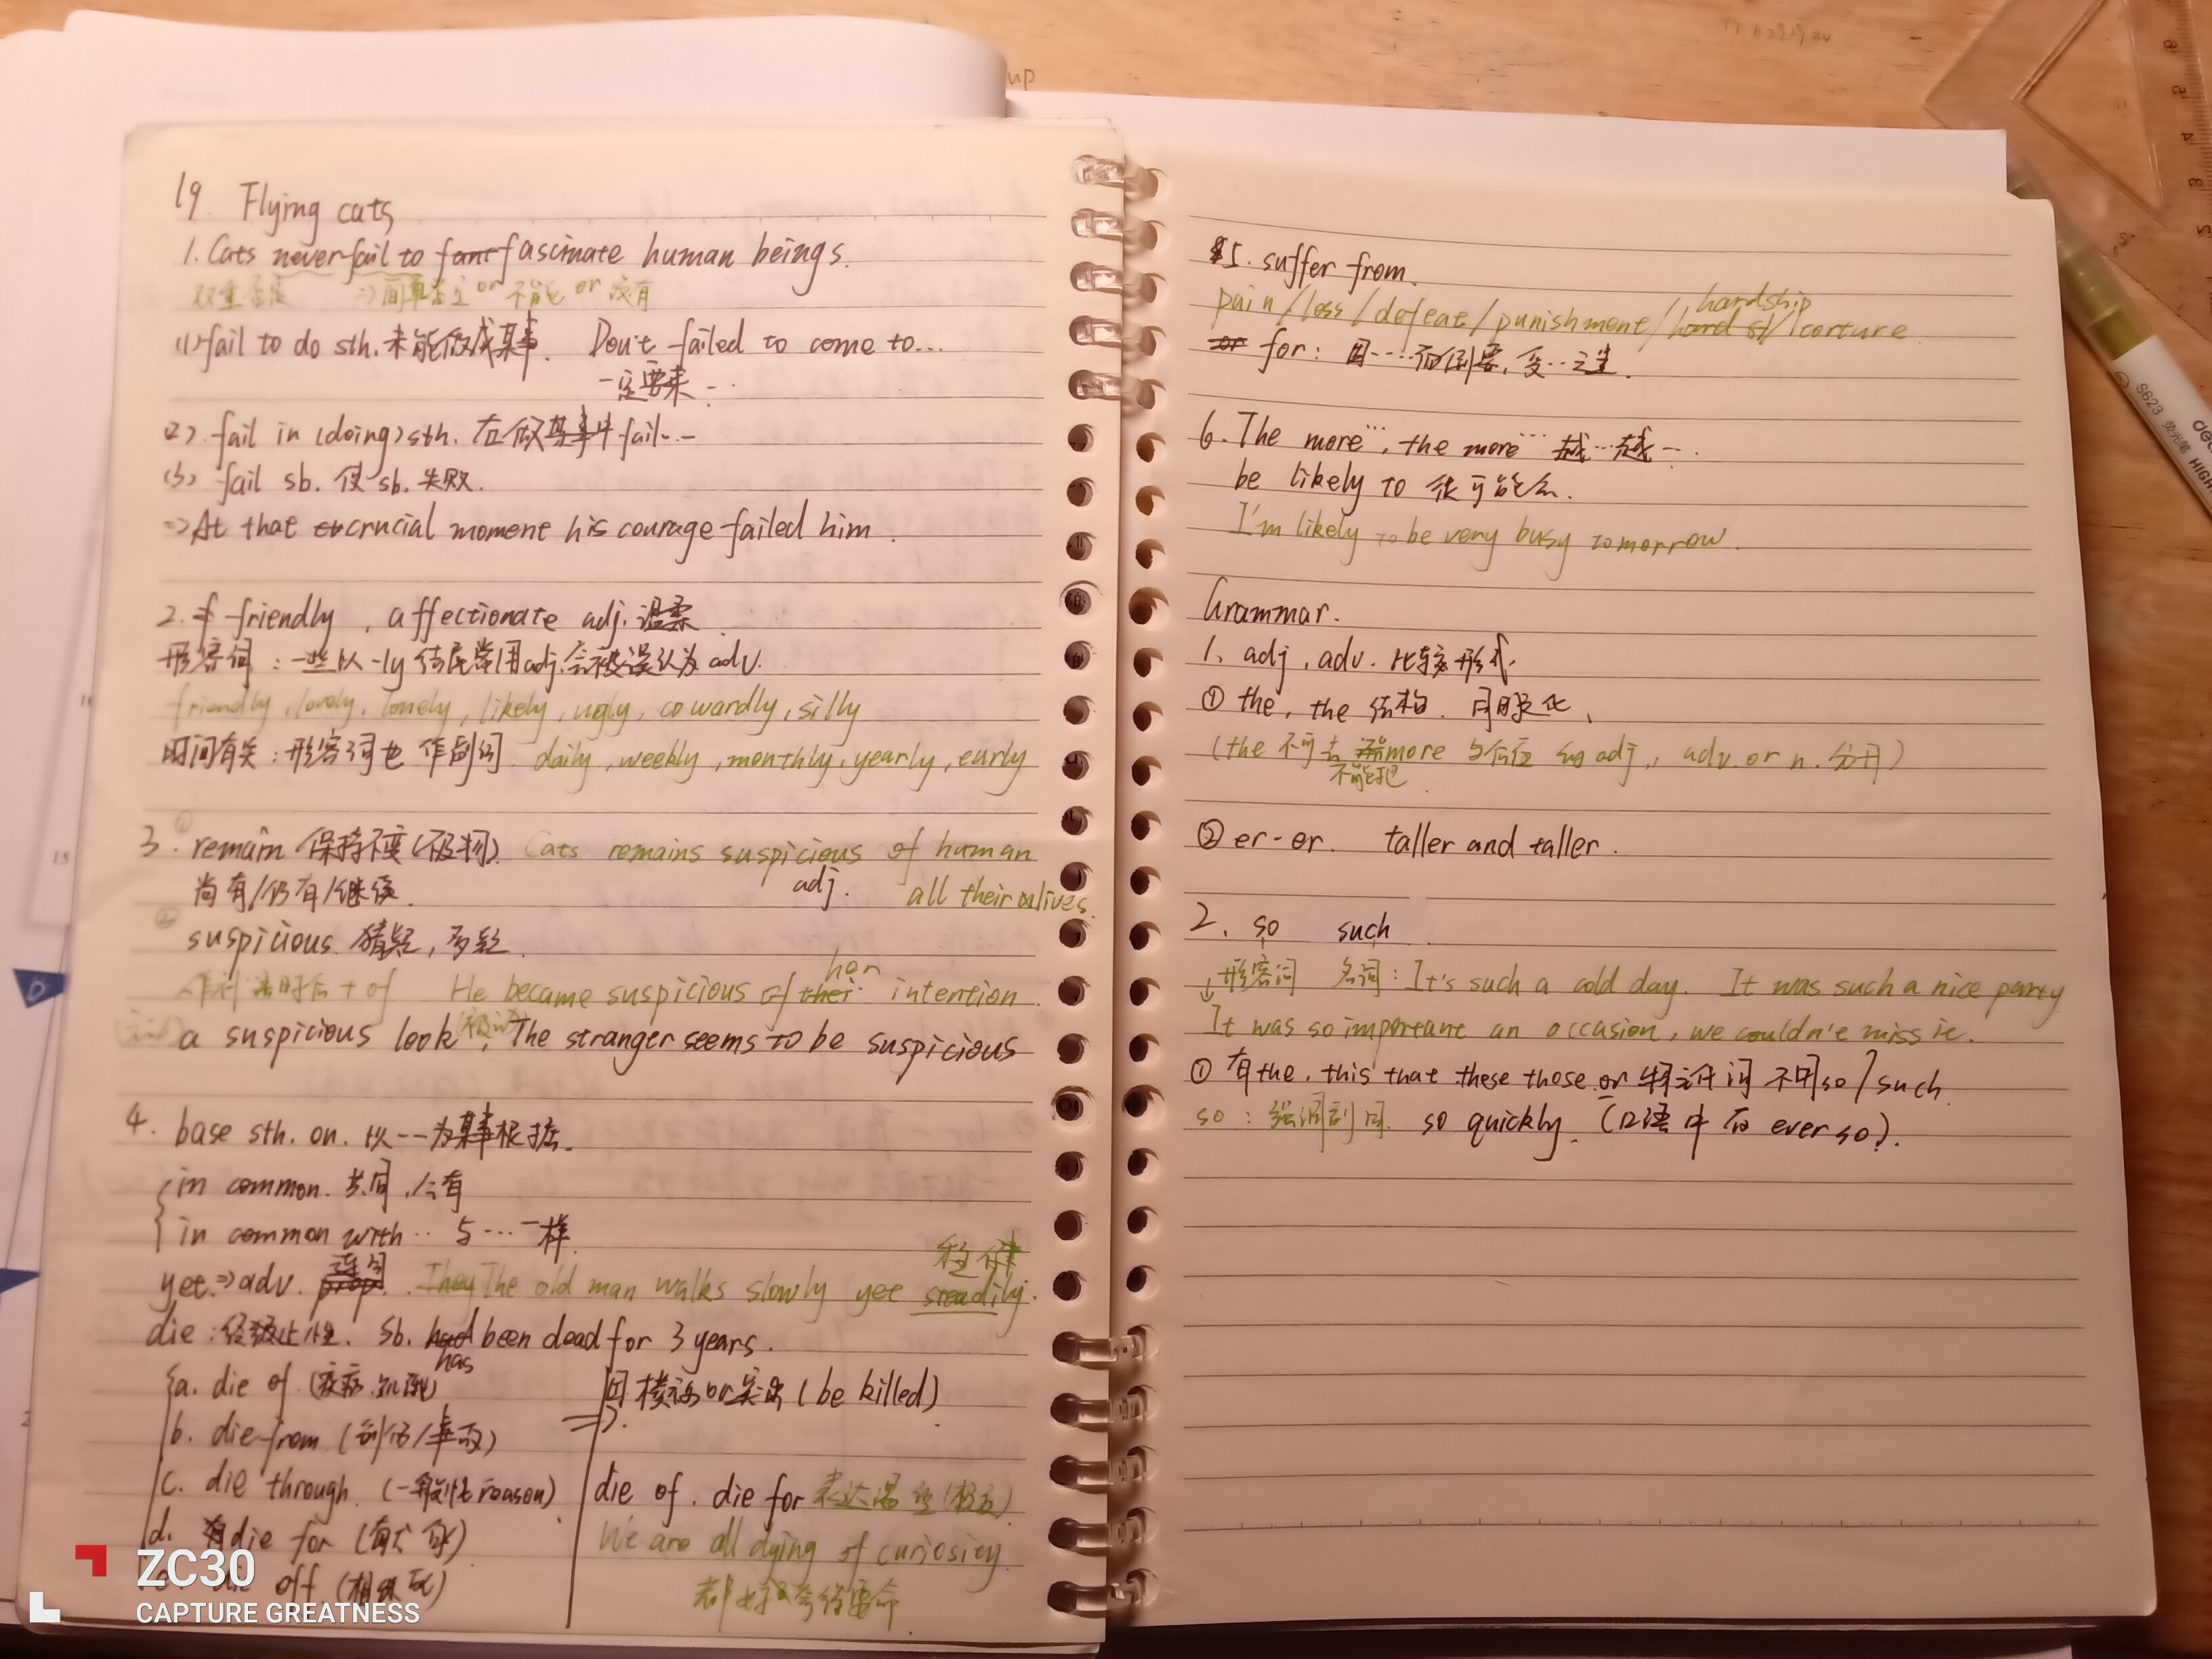 19. Flying cats
1. Cats never fail to fascinate human beings.
双重否定 ⇒ 简单否定 or 不能 or 没有
(1) fail to do sth. 未能做成某事. Don't failed to come to...
一定要来...
(2). fail in (doing) sth. 在做某事中 fail...
(3) fail sb. 使 sb. 失败.
⇒ At that crucial moment his courage failed him.
2. friendly, affectionate adj. 温柔
形容词：一些以 -ly 结尾常用adj.会被误认为 adv.
friendly, lovely, lonely, likely, ugly, cowardly, silly
时间有关：形容词也作副词 daily, weekly, monthly, yearly, early
3. ① remain 保持不变(不及物). Cats remains suspicious of human
尚有/仍有/继续. adj. all their lives.
② suspicious. 猜疑, 多疑.
作 时后 + of He became suspicious of her intention.
a suspicious look, The stranger seems to be suspicious
4. base sth. on. 以...为某事根据.
in common. 共同, 公有
in common with... 与...一样
稳健
yet. ⇒ adv. 连词. The old man walks slowly yet steadily.
die : 终止性. Sb. has been dead for 3 years.
a. die of. (疾病.饥饿)
b. die from. (创伤/事故)
c. die through. (一般性 reason)
d. die for (献身)
die off (相继死)
⇒ 因 or 突出 (be killed)
die of. die for 表达渴望(极为)
We are all dying of curiosity.
都好奇得要命
5. suffer from.
pain / loss / defeat / punishment / hardship / torture
for : 因....而倒霉, 受...之苦.
6. The more..., the more... 越...越...
be likely to 很可能会.
I'm likely to be very busy tomorrow.
Grammar.
1. adj, adv. 比较形式.
① the, the 结构. 同时变化.
(the 不可去 不能把 more 与后面 的 adj., adv. or n. 分开)
② er-er. taller and taller.
2. so such
形容词 名词 : It's such a cold day. It was such a nice party
It was so important an occasion, we couldn't miss it.
① 有the. this that these those or 物主代词 不用so / such.
so : 强调副词. so quickly. (口语中有 ever so).
S623
ZC30
CAPTURE GREATNESS